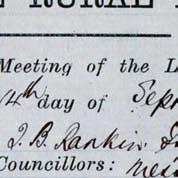 RURAL
Meeting of the L
4th day of Sept
J. B. Rankin
Councillors: